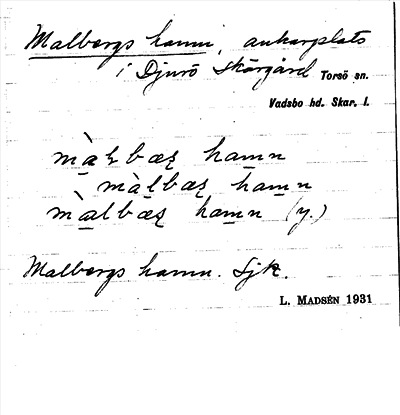 Malbergs hamn, ankarplats
i Djurö Skärgård Torsö sn.
Vadsbo hd. Skar. l.
hamn
hamn
hamn (y.)
Malbergs hamn. Sjk.
L. MADSÉN 1931